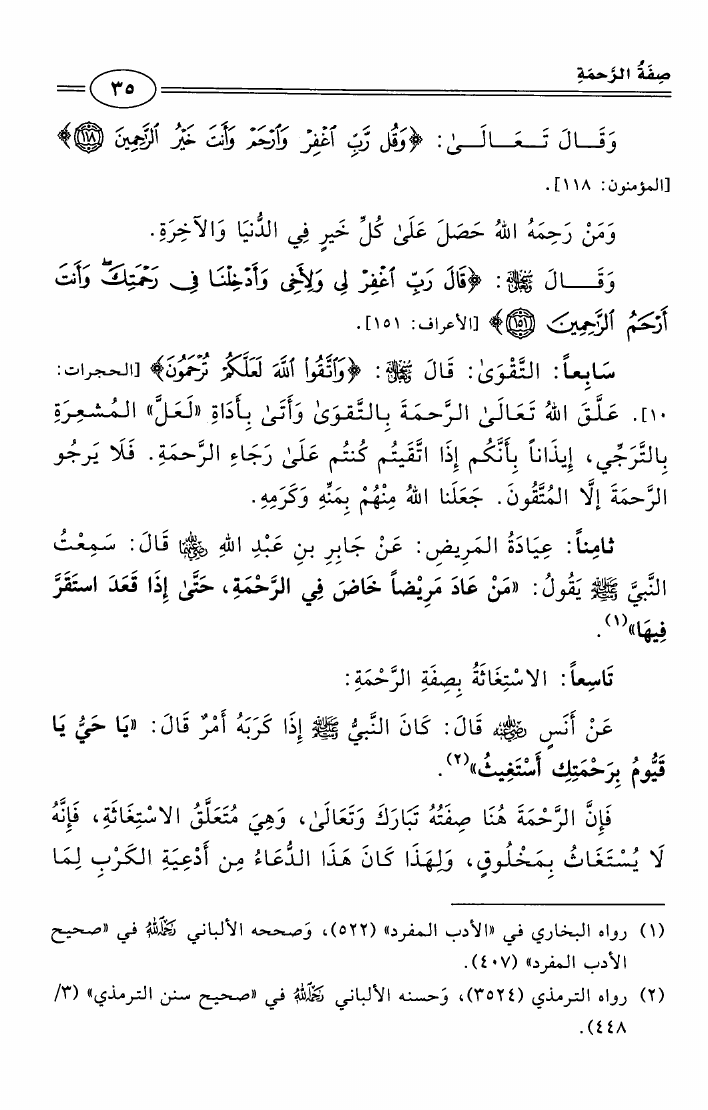 صِفَةُ الرَّحمَةِ
٣٥
وَقَـــالَ تَـــعَـــالَـــىٰ: ﴿وَقُل رَّبِّ ٱغْفِرْ وَٱرْحَمْ وَأَنتَ خَيْرُ ٱلرَّٰحِمِينَ ۝١١٨﴾
[المؤمنون: ١١٨].
وَمَنْ رَحِمَهُ اللهُ حَصَلَ عَلَىٰ كُلِّ خَيرٍ فِي الدُّنيَا وَالآخِرَةِ.
وَقَـــالَ ﷻ: ﴿قَالَ رَبِّ ٱغْفِرْ لِى وَلِأَخِى وَأَدْخِلْنَا فِى رَحْمَتِكَ ۖ وَأَنتَ
أَرْحَمُ ٱلرَّٰحِمِينَ ۝١٥١﴾ [الأعراف: ١٥١].
سَابِعاً: التَّقْوَىٰ: قَالَ ﷻ: ﴿وَٱتَّقُوا۟ ٱللَّهَ لَعَلَّكُمْ تُرْحَمُونَ﴾ [الحجرات:
١٠]. عَلَّقَ اللهُ تَعَالَىٰ الرَّحمَةَ بِالتَّقوَىٰ وَأَتَىٰ بِأَدَاةِ «لَعَلَّ» المُشعِرَةِ
بِالتَّرَجِّي، إِيذَاناً بِأَنَّكُم إِذَا اتَّقَيتُم كُنتُم عَلَىٰ رَجَاءِ الرَّحمَةِ. فَلَا يَرجُو
الرَّحمَةَ إِلَّا المُتَّقُونَ. جَعَلَنا اللهُ مِنْهُمْ بِمَنِّهِ وَكَرَمِهِ.
ثامِناً: عِيَادَةُ المَرِيضِ: عَنْ جَابِرِ بنِ عَبْدِ اللهِ رضي الله عنهما قَالَ: سَمِعْتُ
النَّبيَّ ﷺ يَقُولُ: «مَنْ عَادَ مَرِيْضاً خَاضَ فِي الرَّحْمَةِ، حَتَّىٰ إِذَا قَعَدَ استَقَرَّ
فِيهَا»(١).
تَاسِعاً: الاسْتِغَاثَةُ بِصِفَةِ الرَّحْمَةِ:
عَنْ أَنَسٍ رضي الله عنه قَالَ: كَانَ النَّبيُّ ﷺ إِذَا كَرَبَهُ أَمْرٌ قَالَ: «يَا حَيُّ يَا
قَيُّومُ بِرَحْمَتِكَ أَسْتَغِيثُ»(٢).
فَإِنَّ الرَّحْمَةَ هُنَا صِفَتُهُ تَبَارَكَ وَتَعَالَىٰ، وَهِيَ مُتَعَلَّقُ الاسْتِغَاثَةِ، فَإِنَّهُ
لَا يُسْتَغَاثُ بِمَخْلُوقٍ، وَلِهَذَا كَانَ هَذَا الدُّعَاءُ مِن أَدْعِيَةِ الكَرْبِ لِمَا
(١) رواه البخاري في «الأدب المفرد» (٥٢٢)، وَصححه الألباني رحمه الله في «صحيح
الأدب المفرد» (٤٠٧).
(٢) رواه الترمذي (٣٥٢٤)، وَحسنه الألباني رحمه الله في «صحيح سنن الترمذي» (٣/
٤٤٨).